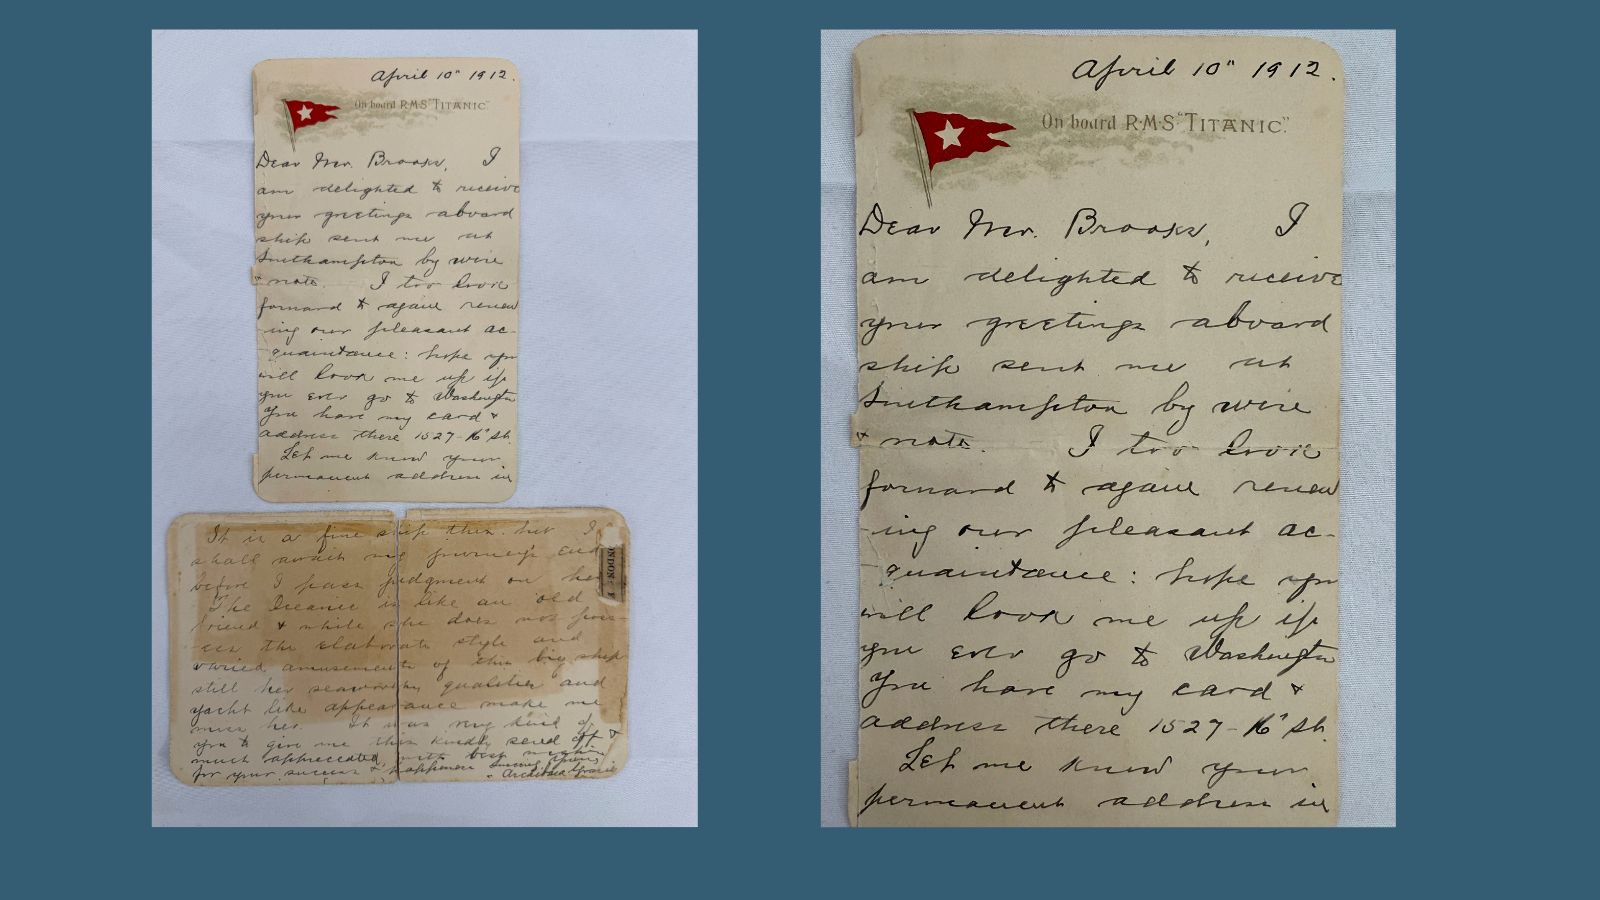 April 10" 1912.
On board R.M.S. "TITANIC."
Dear Mr. Brooks, I
am delighted to receive
your greetings aboard
ship sent me at
Southampton by wire
& note. I too look
forward to again renew
-ing our pleasant ac-
quaintance: hope you
will look me up if
you ever go to Washington
You have my card &
address there 1527-16" St.
Let me know your
permanent address in
It is a fine ship this. but I
shall await my journey's end
before I pass judgment on her
The Oceanic is like an old
friend & while she does not poss-
ess the elaborate style and
varied amusements of this big ship
still her seaworthy qualities and
yacht like appearance make me
miss her. It was very kind of
you to give me this kindly send off &
much appreciated, with best wishes
for your success & happiness
Archibald Gracie
LONDON
April 10" 1912.
On board R.M.S. "TITANIC."
Dear Mr. Brooks, I
am delighted to receive
your greetings aboard
ship sent me at
Southampton by wire
& note. I too look
forward to again renew
-ing our pleasant ac-
quaintance: hope you
will look me up if
you ever go to Washington
You have my card &
address there 1527-16" St.
Let me know your
permanent address in